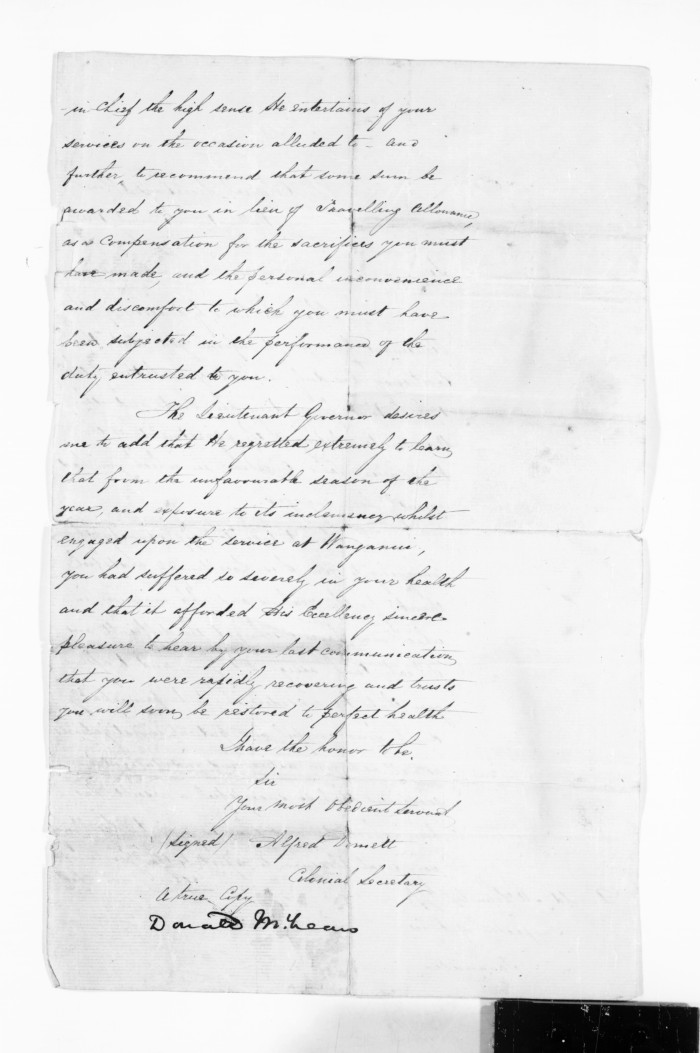 in Chief the high sense He entertains of your
services on the occasion alluded to - and
further, to recommend that some sum be
awarded to you in lieu of Travelling Allowance,
as a Compensation for the sacrifices you must
have made, and the personal inconvenience
and discomfort to which you must have
been subjected in the performance of the
duty entrusted to you.
The Lieutenant Governor desires
me to add that He regretted extremely to learn
that from the unfavourable season of the
year, and exposure to its inclemency whilst
engaged upon the service at Wanganui,
you had suffered so severely in your health
and that it afforded His Excellency sincere
pleasure to hear by your last communication
that you were rapidly recovering and trusts
you will soon be restored to perfect health
I have the honor to be.
Sir
Your Most Obedient Servant
(Signed) Alfred Domett
Colonial Secretary
A true Copy
Donald McLean